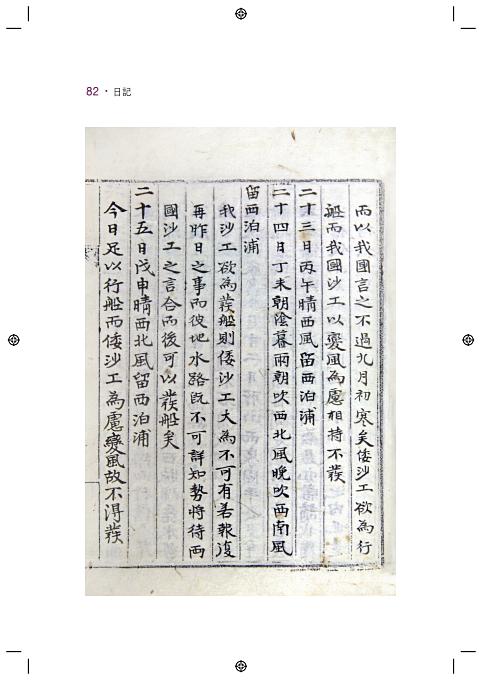 82 · 日記
而以我國言之不過九月初寒矣倭沙工欲為行
船而我國沙工以變風為慮相持不蔉
二十三日丙午晴西風留西泊浦
二十四日丁未朝陰暮雨朝吹西北風晚吹西南風
留西泊浦
我沙工欲為蔉船則倭沙工大為不可有若報復
再昨日之事而彼地水路既不可詳知勢將待两
國沙工之言合而後可以蔉船矣
二十五日戊申晴西北風留西泊浦
今日足以行船而倭沙工為慮變風故不得蔉